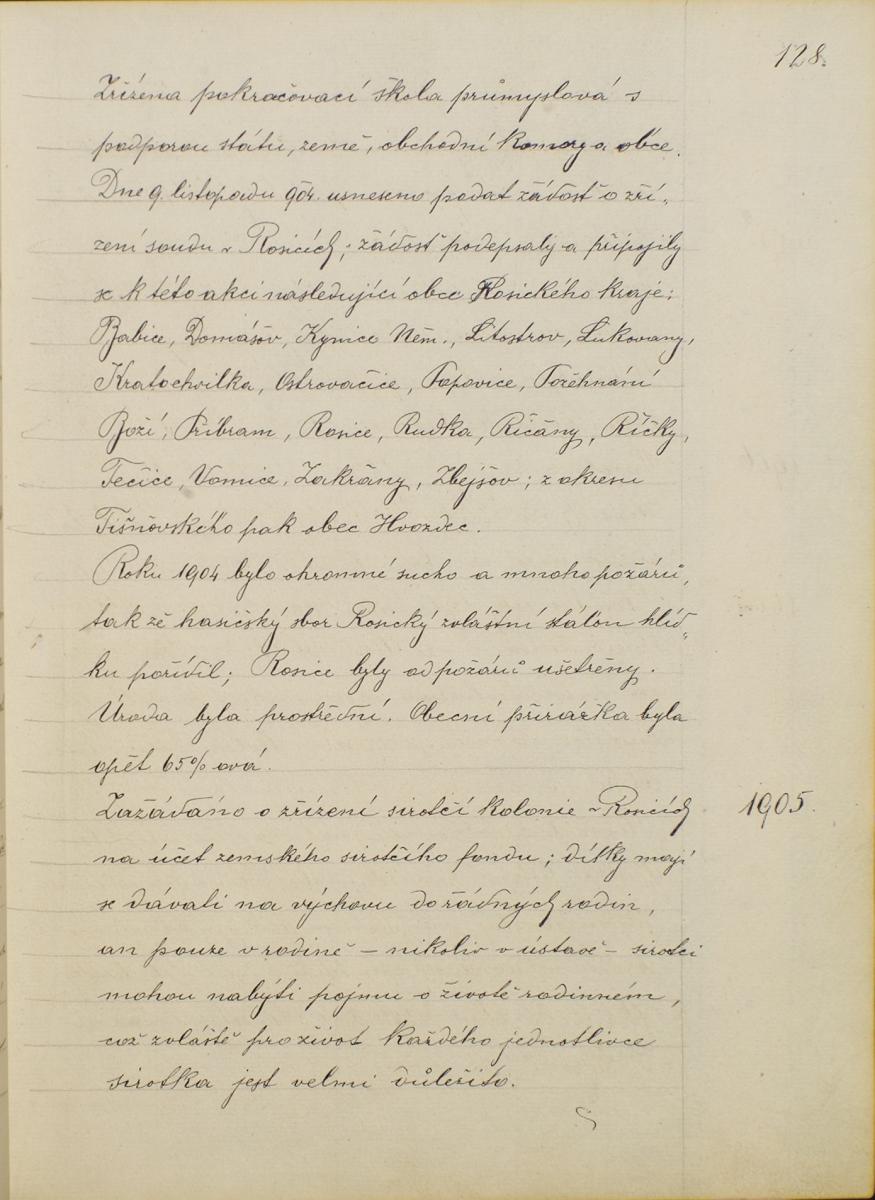 128.
Zřízena pokračovací škola průmyslová s
podporou státu, země, obchodní komory a obce.
Dne 9. listopadu 904. usneseno podat žádost o zří„
zení soudu v Rosicích; žádost podepsaly a připojily
se k této akci následující obce Rosického kraje:
Babice, Domášov, Kynice Něm., Litostrov, Lukovany,
Kratochvilka, Ostrovačice, Popovice, Požehnání
Boží, Příbram, Rosice, Rudka, Říčany, Říčky,
Tečice, Vomice, Zakřany, Zbejšov; z okresu
Tišňovského pak obec Hvozdec.
Roku 1904 bylo ohromné sucho a mnoho požárů,
tak že hasičský sbor Rosický zvláštní stálou hlíd„
ku pořídil; Rosice byly od požárů ušetřeny.
Úroda byla prostřední. Obecní přirážka byla
opět 65% ová.
Zažádáno o zřízení sirotčí kolonie v Rosicích 1905.
na účet zemského sirotčího fondu; dítky mají
se dávati na výchovu do řádných rodin,
an pouze v rodině – nikoliv v ústavě – sirotci
mohou nabýti pojmu o životě rodinném,
což zvláště pro život každého jednotlivce
sirotka jest velmi důležito.